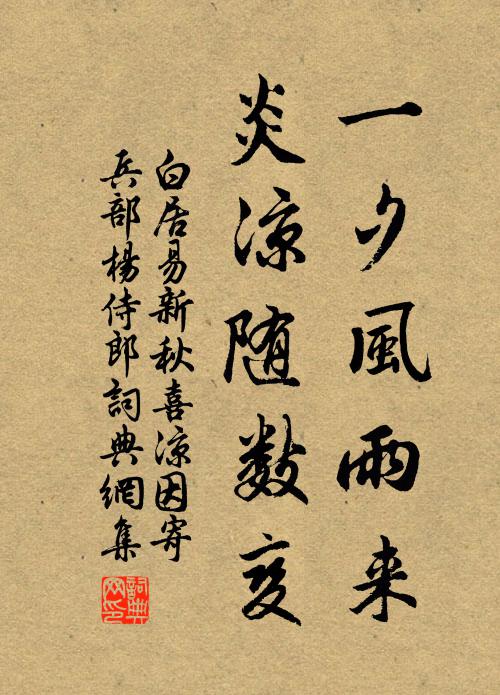 一夕風雨来
炎凉随数变
白居易新秋喜凉因寄
兵部楊侍郎詞典網集
詞典
网印